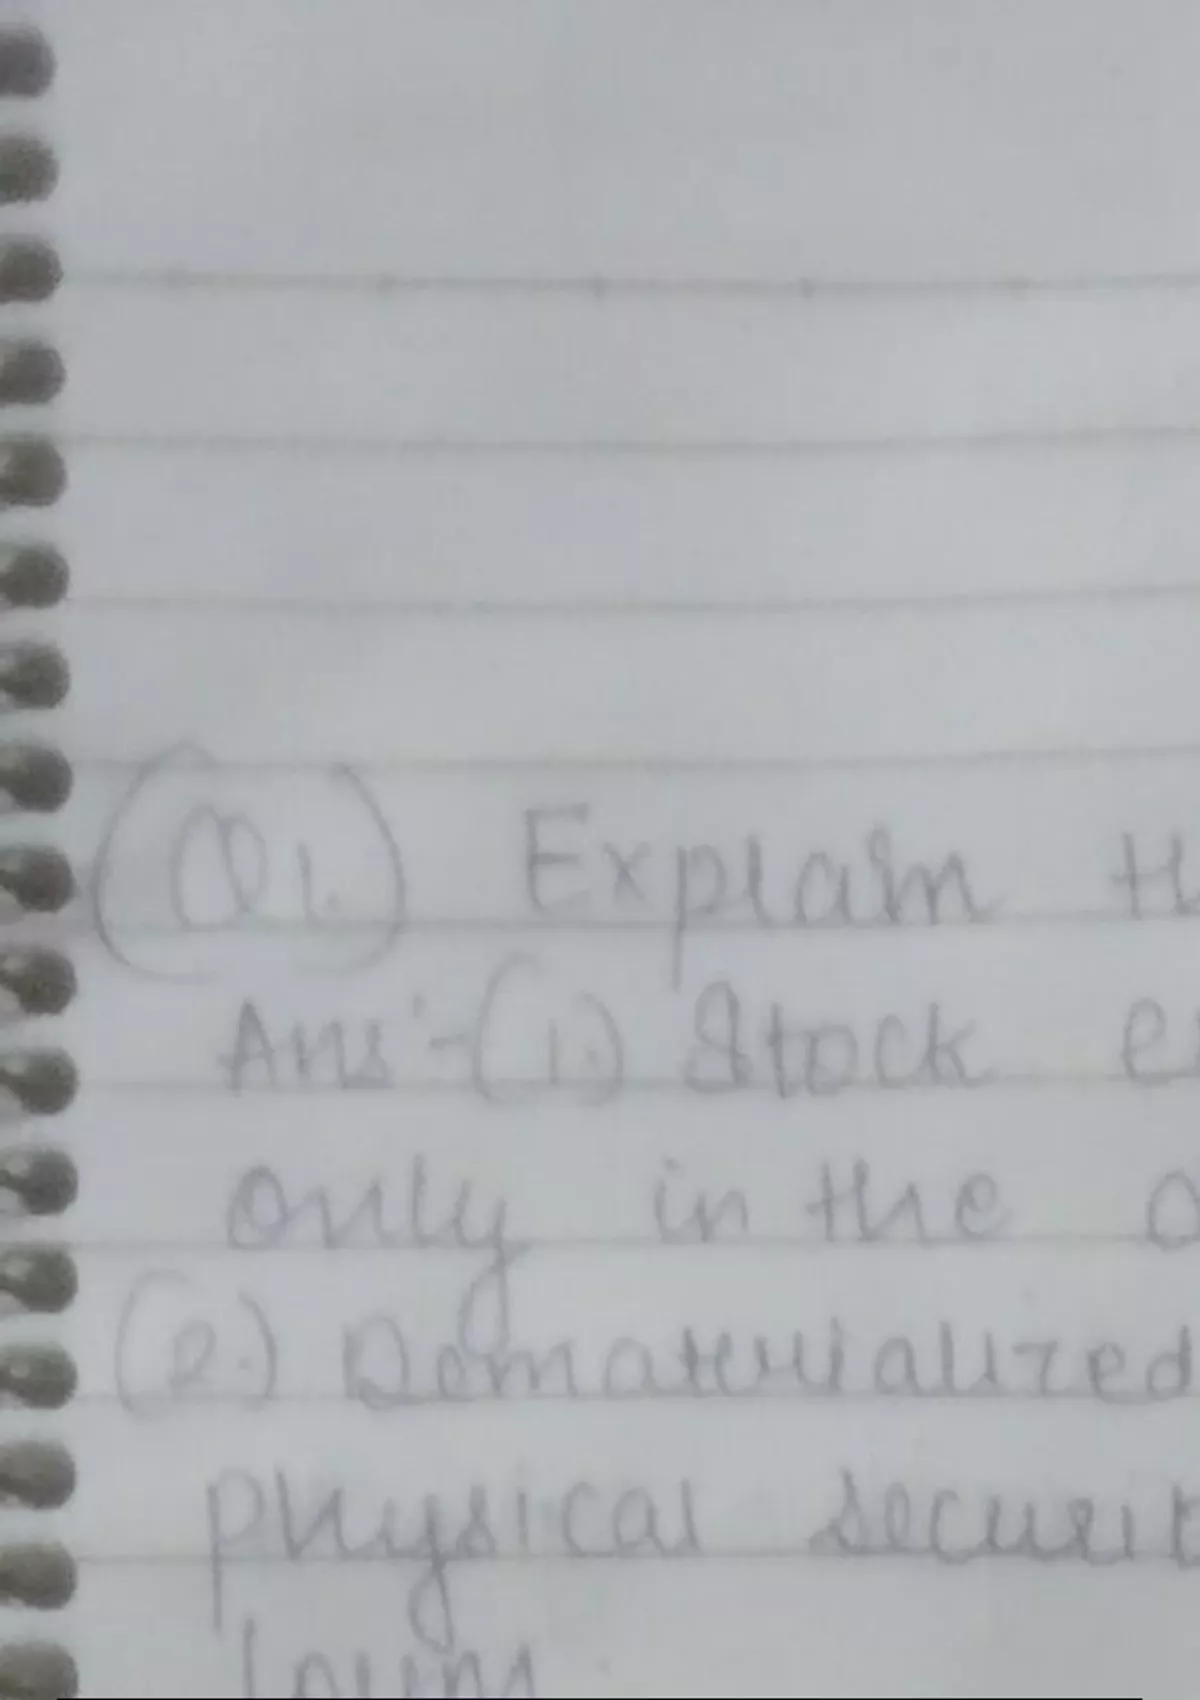 (Q1.) Explain th
Ans:-(1.) Stock e
only in the
(2.) Dematerialized
physical securit
form.